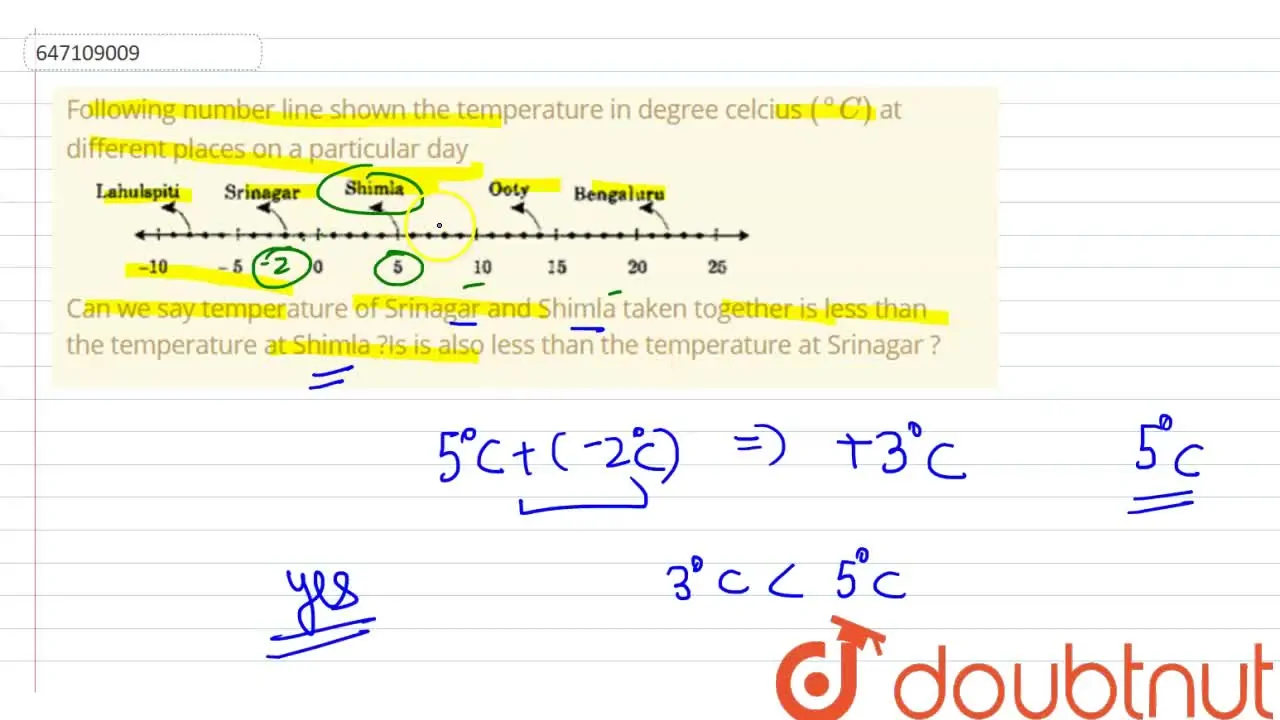 647109009
Following number line shown the temperature in degree celcius (°C) at
different places on a particular day
Lahulspiti Srinagar Shimla Ooty Bengaluru
-10 -5 -2 0 5 10 15 20 25
Can we say temperature of Srinagar and Shimla taken together is less than
the temperature at Shimla ?Is is also less than the temperature at Srinagar ?
5°C + (-2°C) => +3°C 5°C
yes 3°C < 5°C
doubtnut